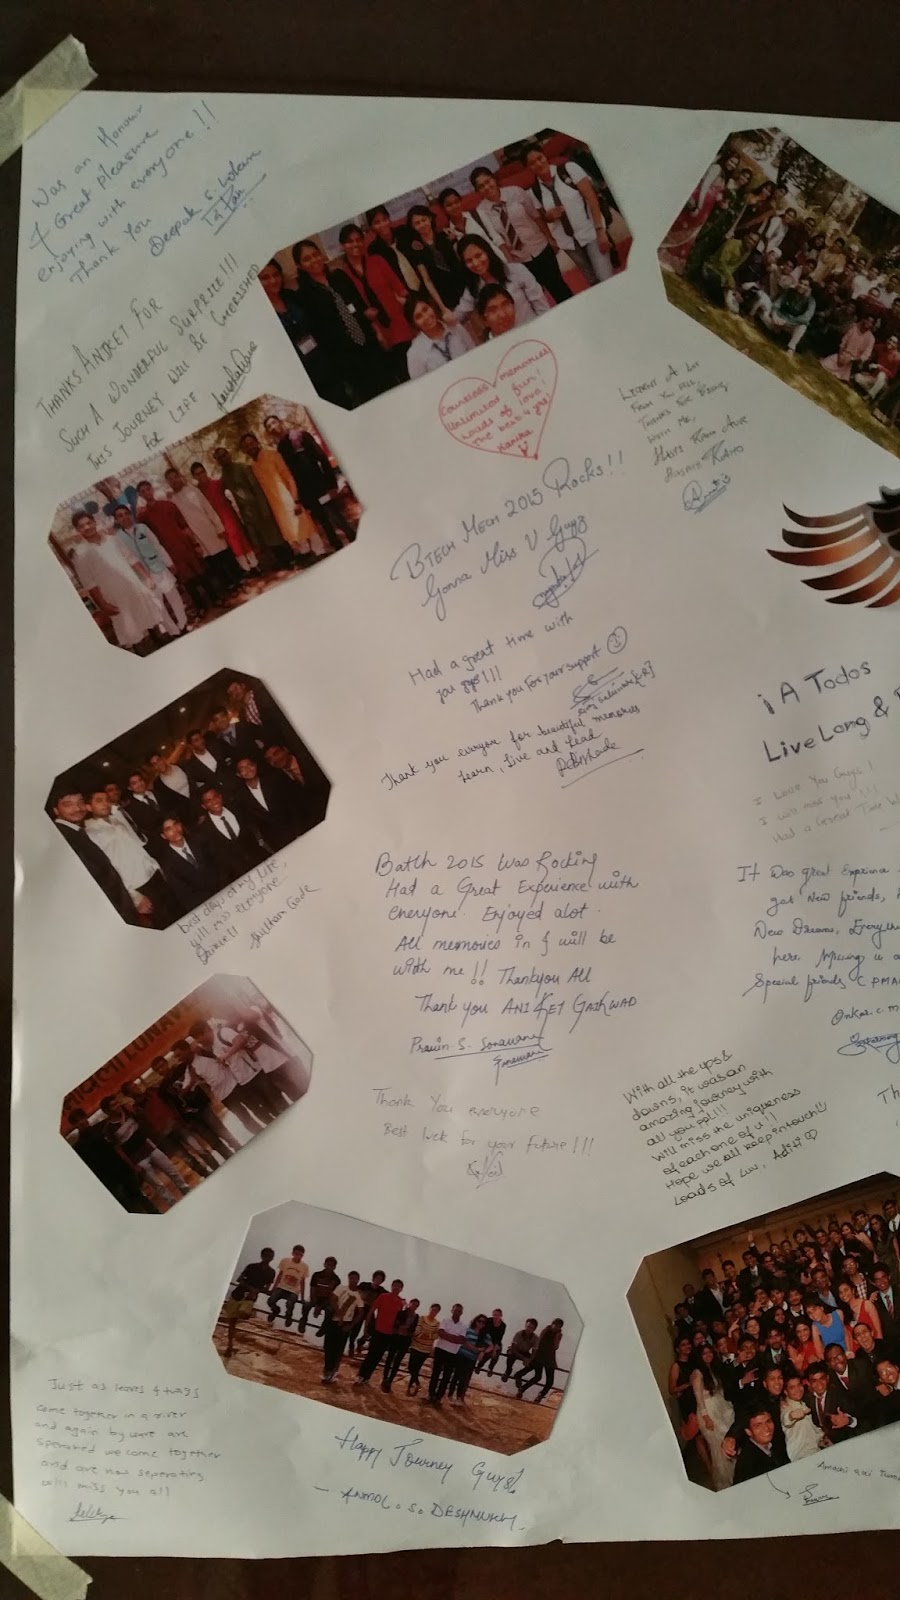 Was an Honour
& Great Pleasure
enjoying with everyone!!
Thank You
Deepak S.
THANKS ANIKET FOR
SUCH A WONDERFUL SURPRIZE!!!
THIS JOURNEY WILL BE CHERISHED
FOR LIFE
Countless memories
Unlimited fun!
Loads of love
The best 4 ya!
Kanika
LEARNT A LOT
FROM YOU ALL,
THANKS FOR BEING
WITH ME,
KHATE RAHO AUR
HASATE RAHO
BTECH MECH 2015 Rocks!!
Gonna Miss U Guyz
Had a great time with
you guys!!!
Thank you for your support
[CR]
Thank you everyone for beautiful memories
Learn, Live and Lead
best days of my life,
will miss everyone
Farewell
Shubham Gade
¡A Todos
Live Long &
I Love You Guys!
I will miss you!!!
Had a Great Time
It was great Experience
got New friends,
New Dreams, Everything
here. Missing u
Special friends
Onkar. C. M
Batch 2015 was Rocking
Had a Great Experience with
everyone. Enjoyed alot.
All memories in & will be
with me!! Thankyou All
Thank you ANIKET GAIKWAD
Pravin. S. Sonawane
Thank You everyone
Best luck for your future!!!
With all the ups &
downs, it was an
amazing journey with
all you ppl!!!
Will miss the uniqueness
of each one of u!!
Hope we all keep in touch
Loads of Luv, Aditi
Just as leaves & twigs
come together in a river
and again by are
seperated we come together
and are now seperating.
will miss you all
Happy Journey Guys!
- ANMOL. S. DESHMUKH.